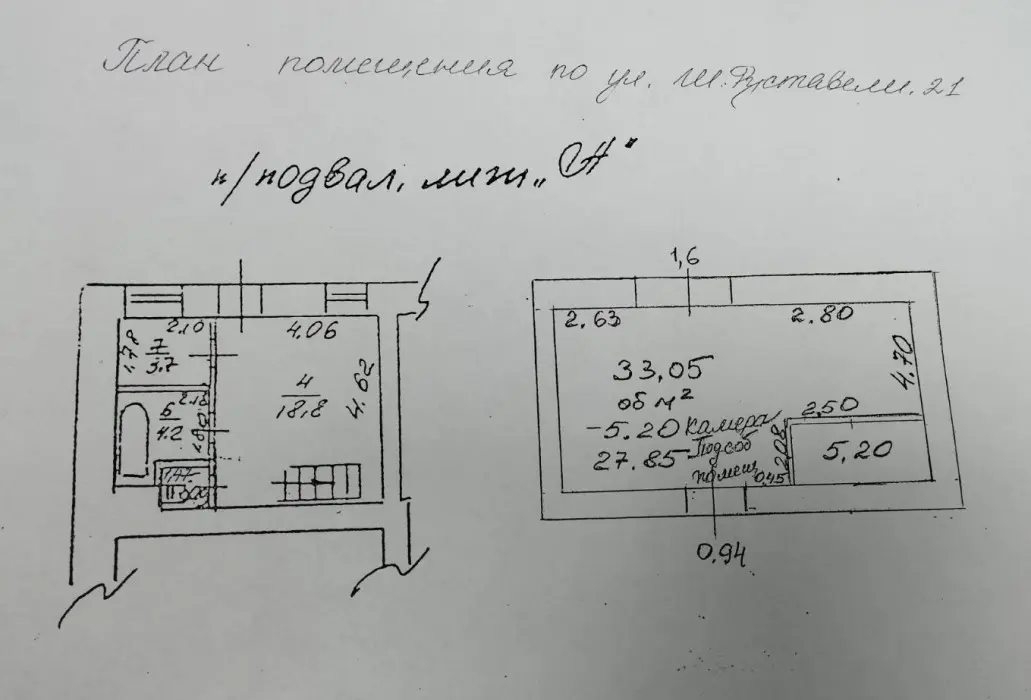 План помещения по ул. Ш.Руставели.21
п/подвал, лит „Н"
2.10
1.78
7
3.7
4.06
4
18,8
4.62
2.18
6
4.2
1,6
2.63
2.80
33,05
об м²
4.70
-5.20 камера
2,50
27.85 Подсоб
помещ
2,08
0,45
5,20
0.94